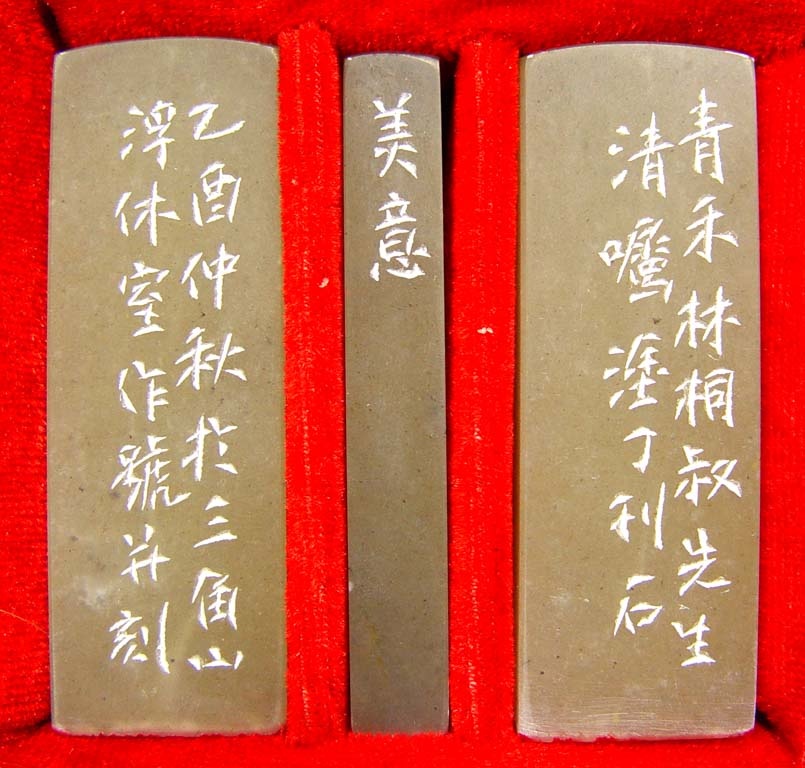 青禾林桐叔先生
清囑塗丁利石
美意
乙酉仲秋於三角山
浮休室作號并刻